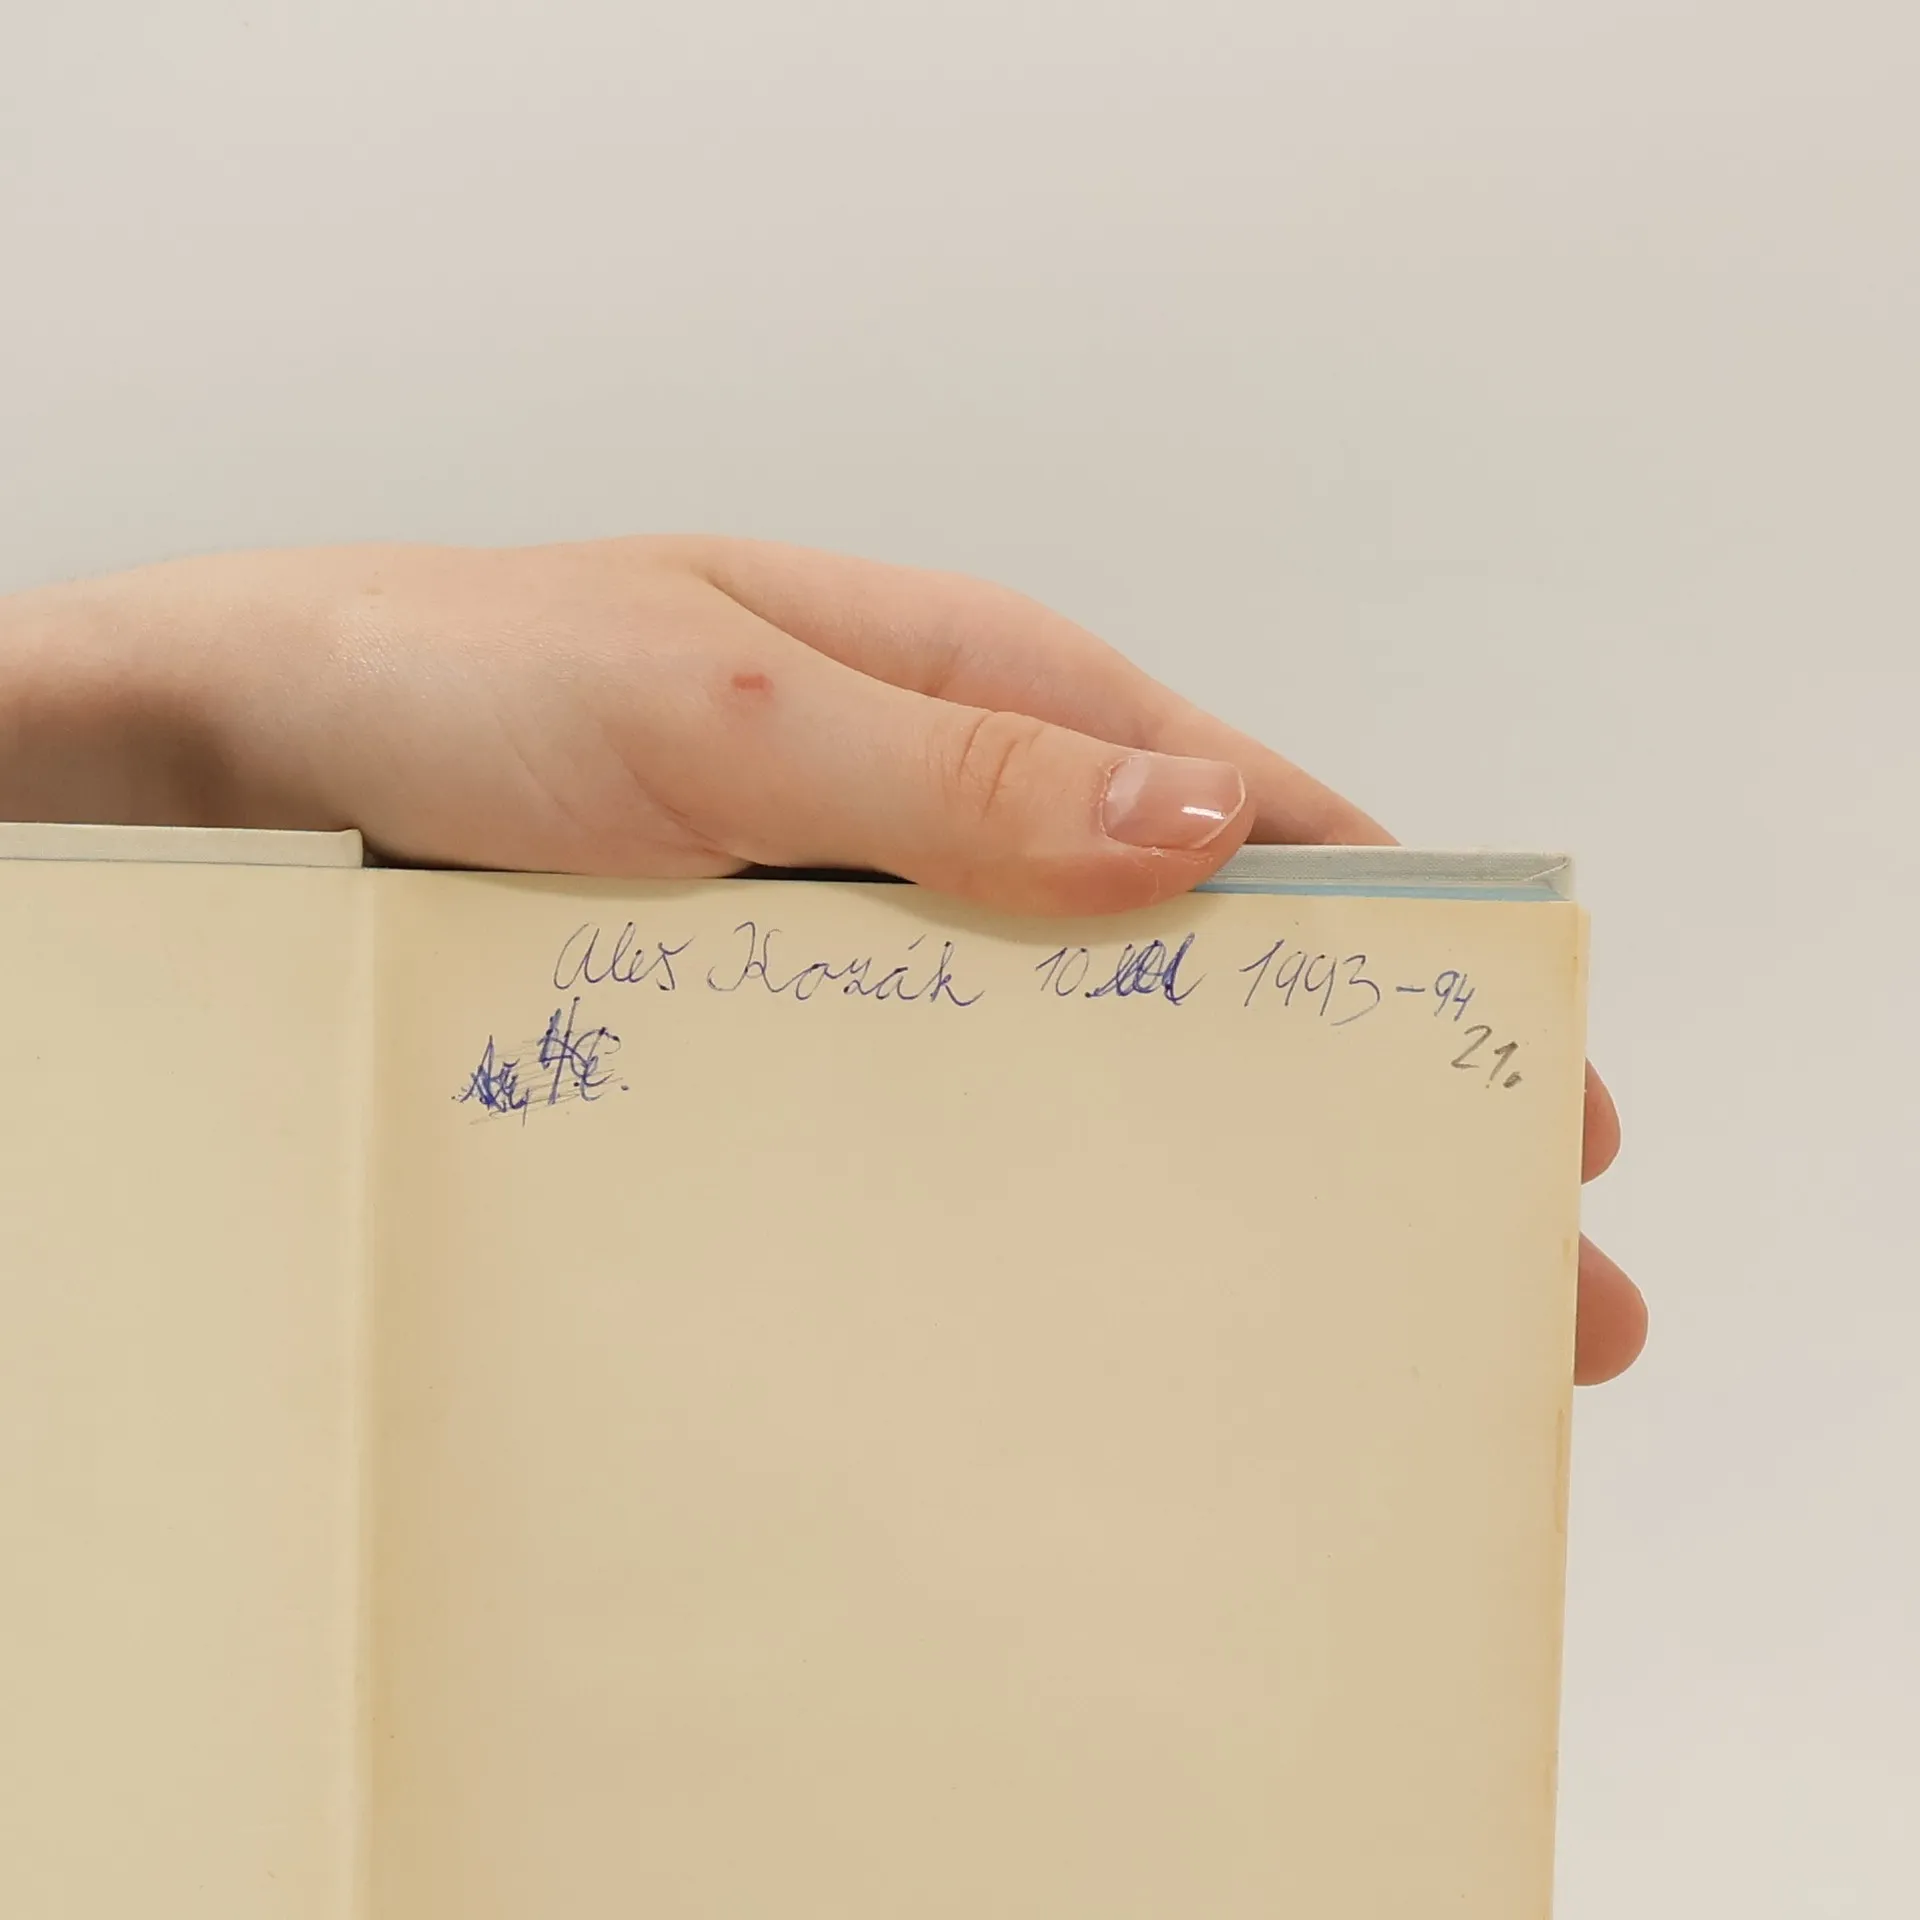 Aleš Kozák 10. 1993-94
21.